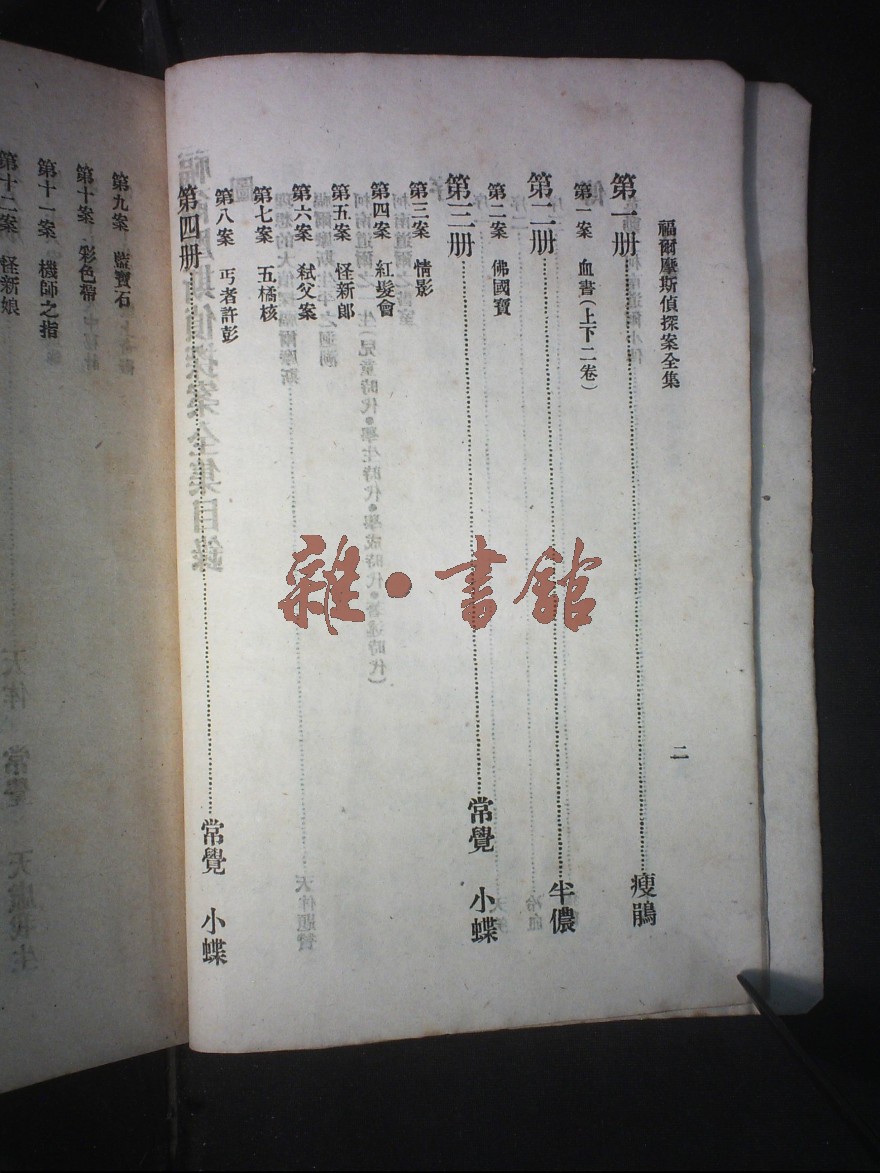 福爾摩斯偵探案全集
二
第一册……瘦鵑
第一案 血書(上下二卷)
第二册……半儂
第二案 佛國寶
第三册……常覺 小蝶
第三案 情影
第四案 紅髮會
第五案 怪新郎
第六案 弒父案
第七案 五橘核
第八案 丐者許彭
第四册……常覺 小蝶
第九案 藍寶石
第十案 彩色帶
第十一案 機師之指
第十二案 怪新娘
雜·書館